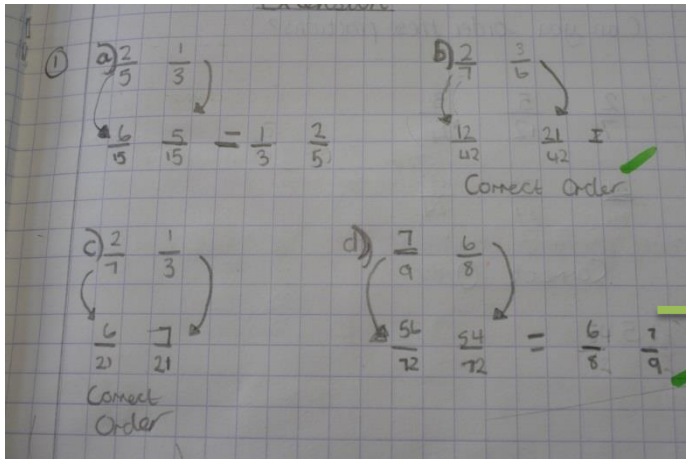 ① a) 2/5 1/3
6/15 5/15 = 1/3 2/5
b) 2/7 3/6
12/42 21/42 =
Correct Order
c) 2/7 1/3
6/21 7/21
Correct
Order
d) 7/9 6/8
56/72 54/72 = 6/8 7/9